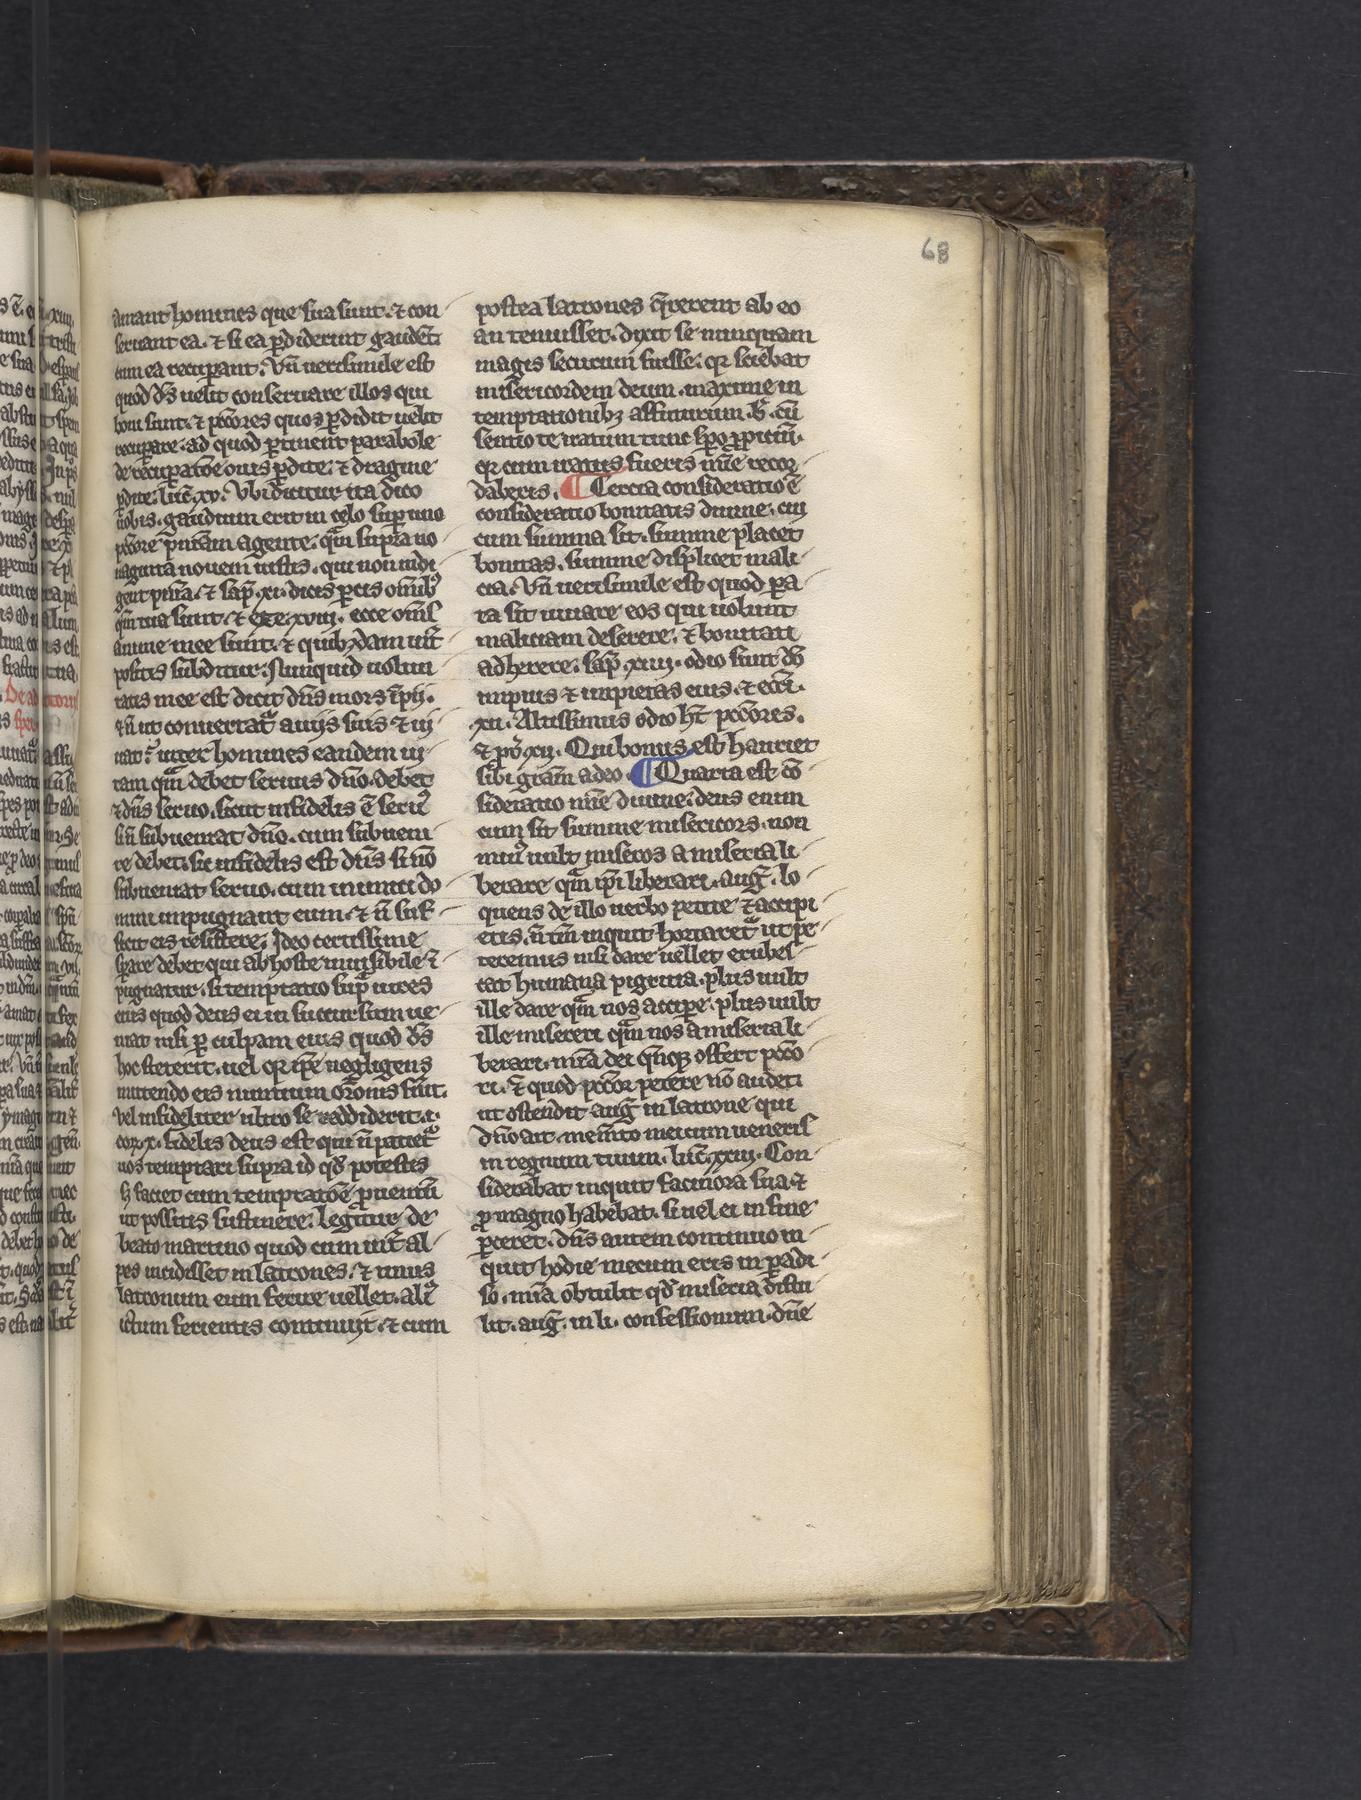 68
amant homines que sua sunt. ⁊ con
seruant ea. ⁊ si ea ꝑdiderint gaudēt
cum ea recuꝑant. Vn̄ uerisimile est
quod d̄s uelit conseruare illos qui
boni sunt. ⁊ pc̄cores quos ꝑdidit uelit
recuꝑare. ad quod ꝑtinent parabole
de recuꝑatōe ouis ꝑdite. ⁊ dragme
ꝑdite. luc̄. xv. Vbi dicitur ita dico
uobis. gaudium erit in celo suꝑ uno
pc̄core pn̄iam agente. qm̄ supra no
naginta nouem iustis. qui non indi
gent pn̄ia. ⁊ sap̄. xi. dicis ꝑcis om̄ib᷒
qm̄ tua sunt. ⁊ eze. xviii. ecce om̄s
anime mee sunt. ⁊ quibꝫdam int̄
positis subditur. Nunquid uolun
tatis mee est dicit dn̄s mors īpii.
⁊ n̄ ut conuertat᷑ a uiis suis ⁊ ui
uat. inter homines eandem ui
tam qm̄ debet seruus dn̄o. debet
⁊ dn̄s seruo. sicut infidelis ē seru᷒
si n̄ subueniat dn̄o. cum subueni
re debet. sic infidelis est dn̄s si nō
subueniat seruo. cum inimici do
mini impugnant eum. ⁊ n̄ suf
ficit eis resistere. Ideo certissime
sꝑare debet qui ab hoste inuisibile ī
pugnatur. si temptatio sup̄ uires
eius quod deus ei in succursum ue
niat nisi ꝑ culpam eius quod d̄s
hoc steterit. uel qr ip̄e negligens
mittendo eis nuntium or̄onis fuit.
Vel infideliter ultro se reddiderit. i.
cor. x. fidelis deus est qui n̄ patiet᷑
uos temptari supra id qd̄ potestis
s̄ faciet cum temptatōe ꝓuentū
ut possitis sustinere. legitur de
beato martino quod cum int̄ al
pes incidisset in latrones. ⁊ unus
latronum eum ferire uellet. ali᷒
ictum ferientis continuit. ⁊ cum
postea latrones q̄rerent ab eo
an timuisset. dixit se nunquam
magis securum fuisse. qr sciebat
misericordem deum. maxime in
temptationibꝫ affuturum. cū
sentio te iratum tunc sꝑo ꝓpitiū.
qr cum iratus fueris mīe recor
daberis. ¶ Tercia consideratio ē
consideratio bonitatis diuine. cui
cum summa sit. summe placet
bonitas. summe displicet mali
cia. Vn̄ uerisimile est quod pa
ra sit iuuare eos qui uolunt
maliciam deserere. ⁊ bonitati
adherere. sap̄. xiiii. odio sunt dō
impius ⁊ impietas eius. ⁊ eccī.
xii. Altissimus odio ht̄ pc̄cores.
⁊ ꝓ. xii. Qui bonus est hauriet
sibi grām a deo. ¶ Quarta est cō
sideratio mīe diuine. deus enim
cum sit summe misericors. non
min᷒ uult miseros a miseria li
berare qm̄ ip̄i liberari. auḡ. lo
quens de illo uerbo petite ⁊ accipi
etis. n̄ tm̄ inquit hortaret᷑ ut pe
teremus nisi dare uellet erubes
cat humana pigritia. plus uult
ille dare qm̄ nos acciꝑe. plus uult
ille misereri qm̄ nos a miseria li
berari. mīa dei offert pc̄co
ri. ⁊ quod pc̄cor petere nō audet.
ut ostendit auḡ in latrone qui
dn̄o ait. mem̄to mei cum ueneris
in regnum tuum. luc̄. xxiii. Con
siderabat inquit facinora sua. ⁊
ꝓ magno habebat. si uel ei in fine
ꝑceret. dn̄s autem continuo in
quit hodie mecum eris in ꝑadi
so. mīa obtulit qd̄ miseria distu
lit. auḡ. in li. confessionum. dn̄e